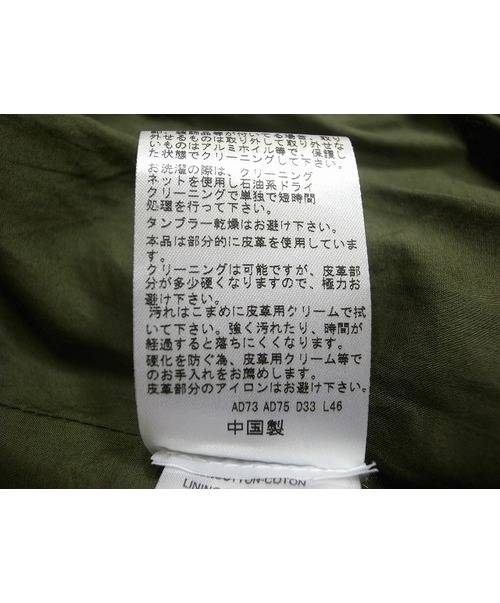 いものはアルミホイル等で保護し
た状態でクリーニングして下さい。
お洗濯の際は、クリーニング
ネットを使用し石油系ドライ
クリーニングで単独で短時間
処理を行って下さい。
タンブラー乾燥はお避け下さい。
本品は部分的に皮革を使用していま
す。
クリーニングは可能ですが、皮革部
分が多少硬くなりますので、極力お
避け下さい。
汚れはこまめに皮革用クリームで拭
いて下さい。強く汚れたり、時間が
経過すると落ちにくくなります。
硬化を防ぐ為、皮革用クリーム等で
のお手入れをお薦めします。
皮革部分のアイロンはお避け下さい。
AD73 AD75 D33 L46
中国製
COTTON-COTON
LINING